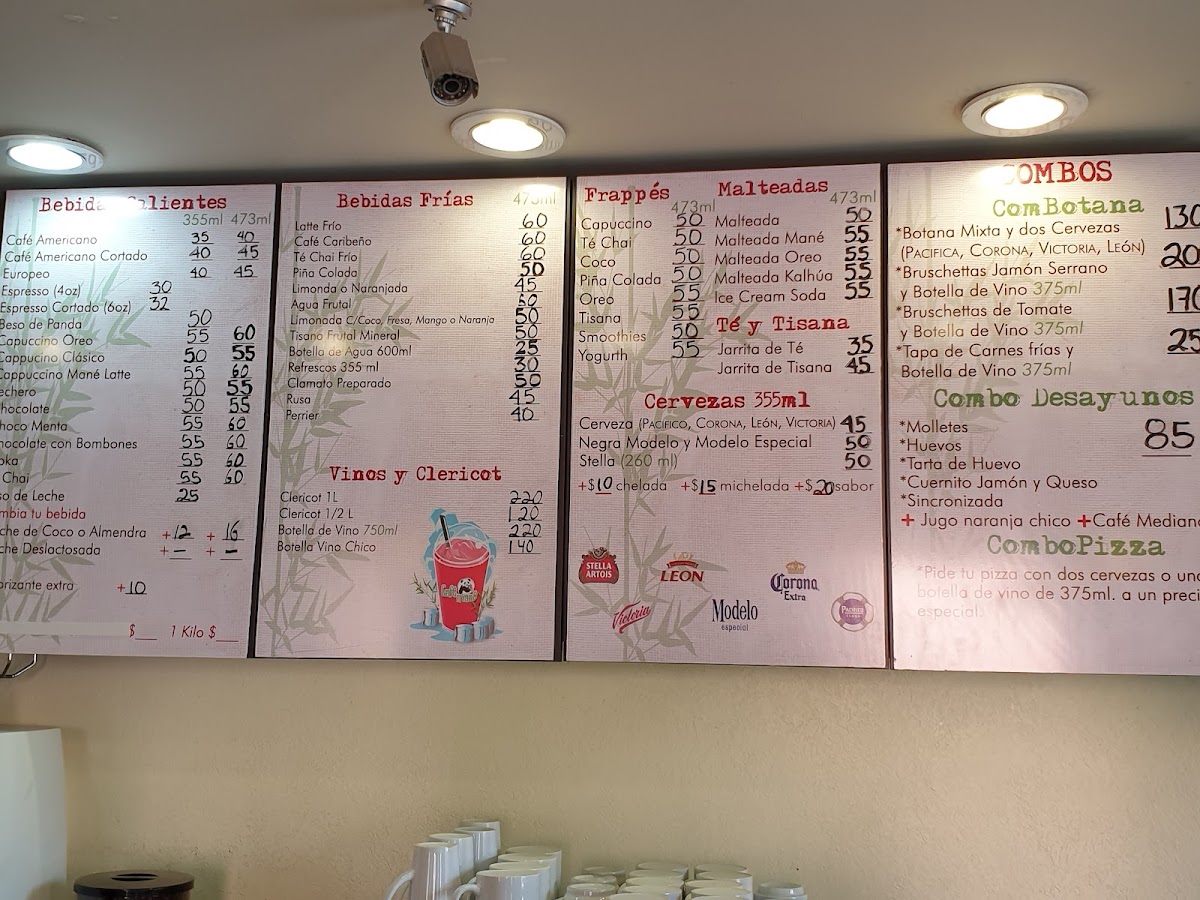 Bebidas Calientes
355ml 473ml
Café Americano 35 40
Café Americano Cortado 40 45
Europeo 40 45
Espresso (4oz) 30
Espresso Cortado (6oz) 32
Beso de Panda 50
Capuccino Oreo 55 60
Cappuccino Clásico 50 55
Cappuccino Mané Latte 55 60
echero 50 55
hocolate 50 55
hoco Menta 55 60
hocolate con Bombones 55 60
oka 55 60
Chai 55 60
so de Leche 25
mbia tu bebida
che de Coco o Almendra +12 +16
che Deslactosada +— +—
orizante extra +10
$___ 1 Kilo $___
Bebidas Frías
473ml
Latte Frío 60
Café Caribeño 60
Té Chai Frío 60
Piña Colada 50
Limonda o Naranjada 45
Agua Frutal
Limonada C/Coco, Fresa, Mango o Naranja 50
Tisana Frutal Mineral 50
Botella de Agua 600ml 25
Refrescos 355 ml 30
Clamato Preparado 50
Rusa 45
Perrier 40
Vinos y Clericot
Clericot 1L 220
Clericot 1/2 L 120
Botella de Vino 750ml 220
Botella Vino Chico 140
Frappés
473ml
Capuccino 50
Té Chai 50
Coco 50
Piña Colada 50
Oreo 55
Tisana 55
Smoothies 50
Yogurth 55
Malteadas
473ml
Malteada 50
Malteada Mané 55
Malteada Oreo 55
Malteada Kalhúa 55
Ice Cream Soda 55
Té y Tisana
Jarrita de Té 35
Jarrita de Tisana 45
Cervezas 355ml
Cerveza (Pacífico, Corona, León, Victoria) 45
Negra Modelo y Modelo Especial 50
Stella (260 ml) 50
+$10 chelada +$15 michelada +$20 sabor
STELLA ARTOIS
LEON
Corona
Extra
Victoria
Modelo
especial
PACIFICO
COMBOS
ComBotana
*Botana Mixta y dos Cervezas 130
(Pacifica, Corona, Victoria, León)
*Bruschettas Jamón Serrano 20
y Botella de Vino 375ml
*Bruschettas de Tomate 170
y Botella de Vino 375ml
*Tapa de Carnes frías y 25
Botella de Vino 375ml
Combo Desayunos
*Molletes 85
*Huevos
*Tarta de Huevo
*Cuernito Jamón y Queso
*Sincronizada
+ Jugo naranja chico +Café Median
ComboPizza
*Pide tu pizza con dos cervezas o una
botella de vino de 375ml. a un preci
especial.